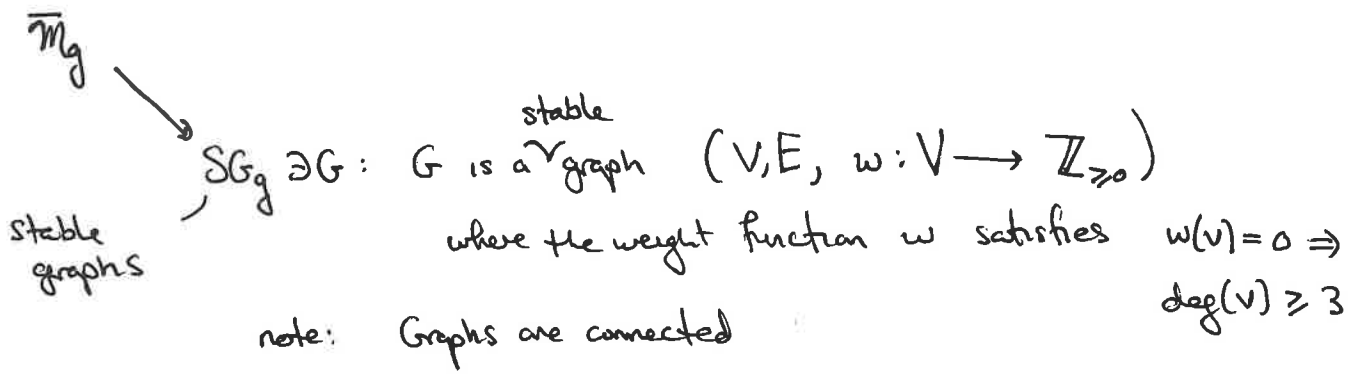 M̄_g
stable
SG_g ∋ G : G is a graph (V, E, w : V ⟶ ℤ_≥0)
stable
graphs
where the weight function w satisfies w(v) = 0 ⇒
deg(v) ≥ 3
note: Graphs are connected